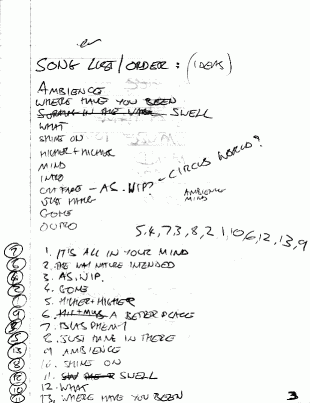 SONG LIST/ORDER: (IDEAS)
AMBIENCE
WHERE HAVE YOU BEEN
SWELL
WHAT
SHINE ON
HIGHER + HIGHER
MIND
INTRO
- AS.WIP? - CIRCUS WORLD?
JUST HANG
AMBIENCE
MIND
GONE
OUTRO
5,4,7,3,8,2,1,10,6,12,13,9
1. IT'S ALL IN YOUR MIND
2. THE WAY NATURE INTENDED
3. AS.WIP.
4. GONE
5. HIGHER + HIGHER
6. A BETTER PLACE
7. BLASPHEMY
8. JUST HANG IN THERE
9 AMBIENCE
10. SHINE ON
11. SWELL
12. WHAT
13. WHERE HAVE YOU BEEN
3